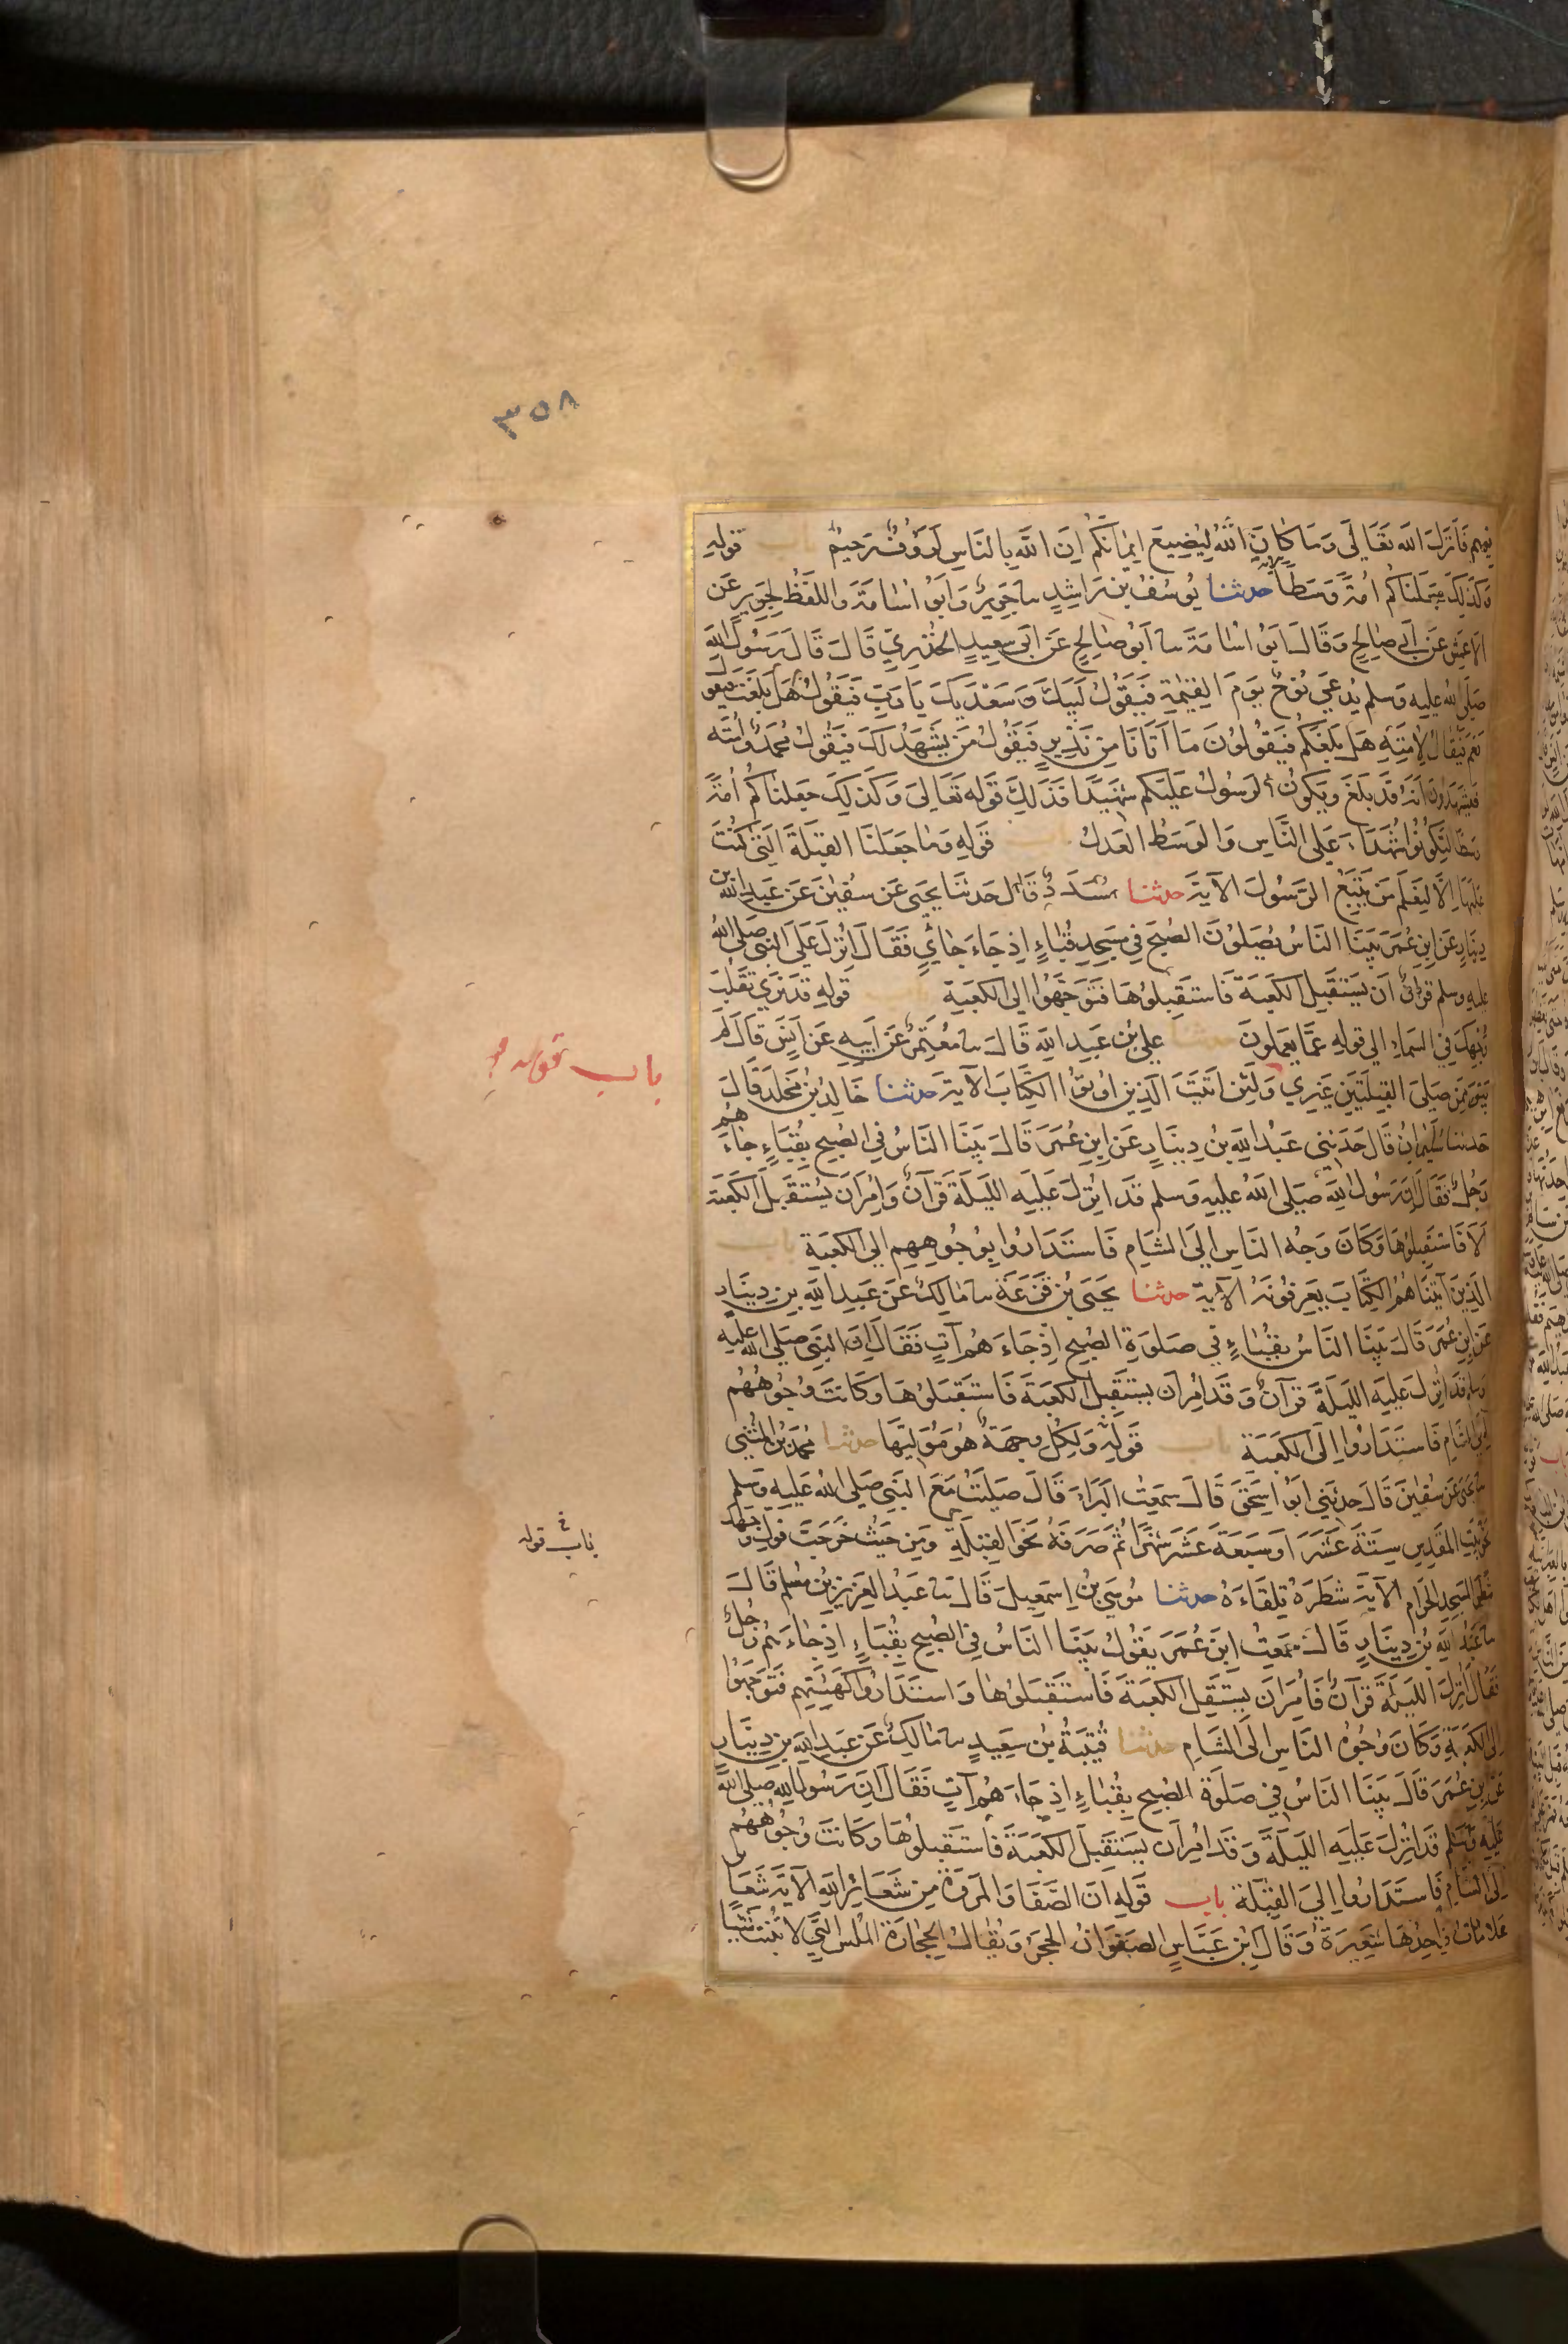 ٣٥٨
فيهم فَأَنزلَ الله تعَالَى وَمَا كَانَ اللهُ لِيُضِيعَ ايمانَكُم اِنَ اللهَ بِالنَاسِ لَرَؤفٌ رَحِيمٌ باب قوله
وَكَذلِكَ جَعَلنَاكُم اُمَةً وَسَطًا الاية حدثنا يُوسُفُ بن رَاشِدٍ سا جَرِيرٌ وَابَوُ اسَامَةَ وَاللفظُ لِجَرِيرٍ عَن
الاعمَشِ عَن اَبى صَالِحٍ وَقَالَ ابَوُ اسَامَةَ سا اَبوُ صَالِحٍ عَن اَبى سَعِيدٍ الخُدرِيّ قَالَ قَالَ رَسُولُ اللهِ
صَلى الله عليهِ وَسلم يُدعَى نُوحٌ يَومَ القِيمَةِ فَيَقُولُ لَبَيكَ وَسَعدَيكَ يَا رَبِ فَيَقُولُ هَل بَلَغتَ فيقول
نَعَم فَيُقَالُ لِامَتِهِ هَل بَلغَكُم فَيَقُولوُنَ مَا اَتَانَا مِن نَذِيرٍ فَيَقُولُ مَن يَشهَدُ لَكَ فَيَقُولُ مُحَمَدٌ وَامَتُه
فَيَشهَدُونَ اَنَهُ قَد بَلَغَ وَيَكونُ الرَسُولُ عَلَيكُم شَهيدًا فَذَلِكَ قَوله تَعَالىَ وَكَذلِكَ جَعَلنَاكُم اُمَةً
وَسَطًا لِتَكوُنوُا شُهَدَاءَ عَلى النَّاسِ وَالوَسَطُ العَدلُ باب قَوله وَمَا جَعَلنَا القِبلَةَ التى كُنتَ
عَلَيهَا اِلاَّ لِنَعلَمَ مَن يَتبَعُ الرَسُولَ الآيَة حدثنا مُسَدَدٌ قَالَ حَدثنَا يَحيَى عَن سُفينَ عَن عَبدِ اللهِ بن
دِينَارٍ عَن ابنِ عُمَرَ بَينَا النَاسُ يُصَلوُنَ الصُبحَ فى مَسجِدِ قُبَاءٍ اِذ جَاءَ جَاىٍ فَقَالَ اُنزِلَ عَلى النَبى صَلى اللهُ
عليهِ وسلم قرانٌ اَن يَستَقبِلَ الكَعبَةَ فَاستَقبِلوُهَا فَتَوَجَهُوا الى الكَعبَةِ باب قوله قد نرَى تقَلُبَ
وَجهِكَ فى السَمَاءِ الى قوله عَمَا يَعمَلونَ حدثنا عَلى بنُ عَبدِ الله قَالَ سا مُعتَمِرٌ عَن اَبيهِ عَن اَنَسٍ قَالَ لَم
يَبقَ مِمَن صَلىَ القِبلتَينِ غَيرِي وَلَئِن اَتَيتَ الَذِينَ اوُتوُا الكِتَابَ الآيَة حدثنا خَالِدُ بنُ مَخلَدٍ قَالَ
حَدثنَا سُلَيمَانُ قَالَ حَدَثنى عَبدُ اللهِ بنُ دِينَارٍ عَن ابنِ عُمَرَ قَالَ بَينَا النَاسُ فى الصُبحِ بِقُبَاءٍ جَاءَهُم
رَجُلٌ فَقَالَ اِنَ رَسُولَ اللهِ صَلى اللهُ عليهِ وسلم قَد انُزِلَ عَلَيهِ الليلَةَ قُرآنٌ وَامِرَ اَن يَستَقبِلَ الكَعبَةَ
اَلاَ فَاستَقبِلوُهَا وَكَانَ وَجهُ النَاسِ الىَ الشَامِ فَاستَدَارُوا بِوُجُوهِهِم الى الكَعبَةِ باب
الَذِينَ آتَينَاهُمُ الكِتَابَ يَعرِفوُنَهُ الآيَة حدثنا يَحيَى بنُ قَزَعَةَ سا مَالِكٌ عَن عَبدِ اللهِ بنِ دِينَارٍ
عَن ابنِ عُمَرَ قَالَ بَينَا النَاسُ بِقُبَاءٍ فى صَلوَةِ الصُبحِ اِذ جَاءَهُم آتٍ فَقَالَ اِنَ النَبِى صَلى اللهُ عليه
وسلم قَد اُنزِلَ عَلَيهِ الليلَةَ قُرآنٌ وَقَد اُمِرَ اَن يَستَقبِلَ الكَعبَةَ فَاستَقبَلوُهَا وَكَانَت وُجُوهُهُم
اِلى الشَامِ فَاستَدَارُوا اِلى الكَعبَةِ باب قَولِه وَلِكُلٍ وِجهَةٌ هُوَ مُوَليهَا حدثنا مُحَمَدُ بنُ المُثَنى
سا يَحيَى عَن سُفينَ قَالَ حَدَثنى ابوُ اِسحَقَ قَالَ سَمِعتُ البَرَاءَ قَالَ صَلَيتُ مَعَ النَبِى صَلى اللهُ عَليهِ وسلم
نَحوَ بَيتِ المَقدِسِ سِتَةَ عَشَرَ اَو سَبعَةَ عَشَرَ شَهرًا ثُم صَرَفَهُ نَحوَ القِبلَةِ وَمِن حَيثُ خَرَجتَ فَوَلِ وَجهَكَ
شَطرَ المَسجِدِ الحَرَامِ الآيَة شَطرَهُ تِلقَاءَهُ حدثنا مُوسَى بنُ اِسمَعِيلَ قَالَ سا عَبدُ العَزِيزِ بنُ مُسلِمٍ قَالَ
سا عَبدُ اللهِ بنُ دِينَارٍ قَالَ سَمِعتُ ابنَ عُمَرَ يَقوُلُ بَينَا النَاسُ فى الصُبحِ بِقُبَاءٍ اِذ جَاءَهُم رَجُلٌ
فَقَالَ اُنزِلَ الليلَةَ قُرآنٌ فَاُمِرَ اَن يَستَقبِلَ الكَعبَةَ فَاستَقبَلوُهَا وَاستَدَارُوا كَهَيئَتِهِم فَتَوَجَهُوا
اِلى الكَعبَةِ وَكَانَ وُجُوهُ النَاسِ الىَ الشَامِ حدثنا قُتَيبَةُ بنُ سَعِيدٍ سا مَالِكٌ عَن عَبدِ اللهِ بنِ دِينَارٍ
عَن ابنِ عُمَرَ قَالَ بَينَا النَاسُ فى صَلَوةِ الصُبحِ بِقُبَاءٍ اِذ جَاءَهُم آتٍ فَقَالَ اِنَ رَسُولَ اللهِ صَلى اللهُ
عَليهِ وَسَلم قَد اُنزِلَ عَلَيهِ الليلَةَ وَقَد اُمِرَ اَن يَستَقبِلَ الكَعبَةَ فَاستَقبِلوُهَا وَكَانَت وُجُوهُهُم
اِلى الشَامِ فَاستَدَارُوا اِلىَ القِبلَةِ باب قَولِه اِنَ الصَفَا وَالمَروَةَ مِن شَعَائِرِ اللهِ الآيَة شَعَائِر
عَلامَات وَاحِدُهَا شَعِيرَةٌ وَقَالَ ابنُ عَبَاسٍ الصَفوَانُ الحَجَرُ وَيُقَالُ الحِجَارَةُ المُلسُ التِى لاَ تُنبِتُ شَيئًا
باب قوله
باب قوله